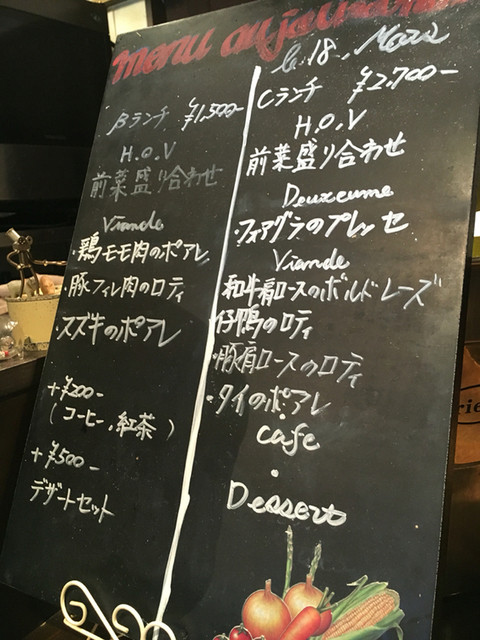 menu aujourd
le 18, Mars
Bランチ ¥1,500-
H.O.V
前菜盛り合わせ
Viande
・鶏モモ肉のポアレ
・豚フィレ肉のロティ
・スズキのポアレ
+¥200-
(コーヒー,紅茶)
+¥500-
デザートセット
Cランチ ¥2,700-
H.O.V
前菜盛り合わせ
Deuxeume
・フォアグラのプレッセ
Viande
・和牛肩ロースのボルドレーズ
・仔鴨のロティ
・豚肩ロースのロティ
・タイのポアレ
・
cafe
・
Dessert